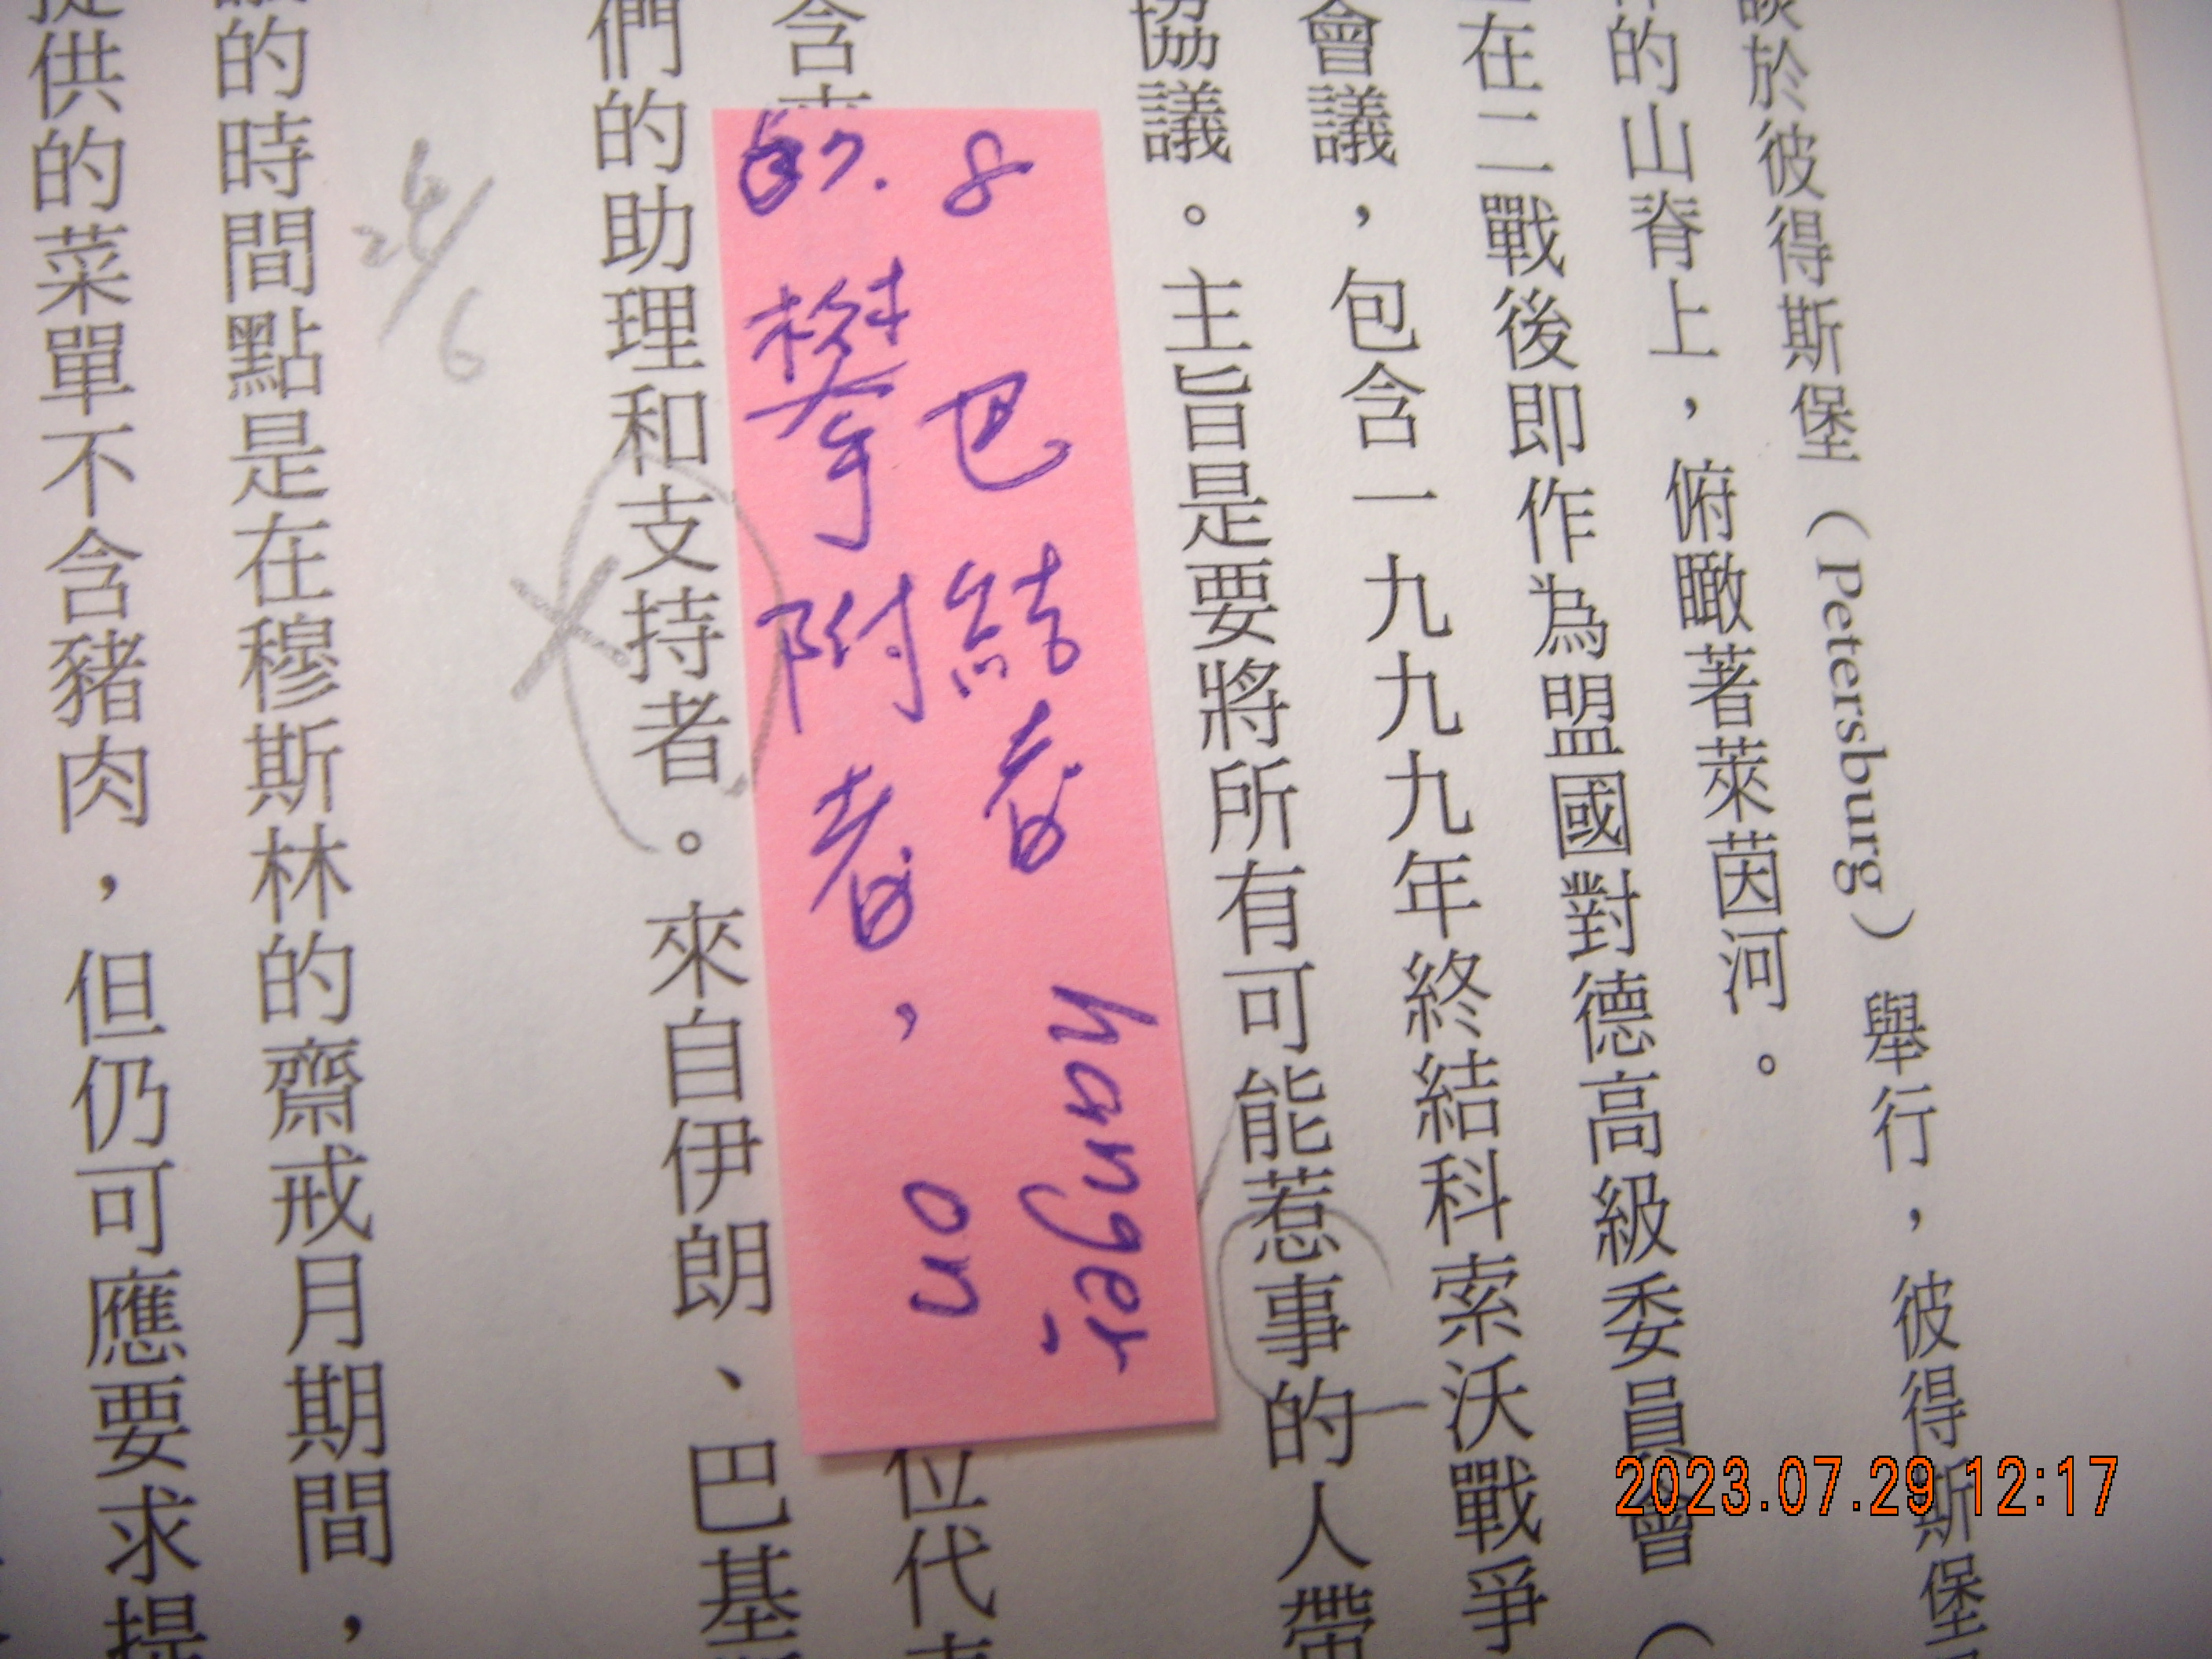 談於彼得斯堡（Petersburg）舉行，彼得斯堡
的山脊上，俯瞰著萊茵河。
在二戰後即作為盟國對德高級委員會（
會議，包含一九九九年終結科索沃戰爭
協議。主旨是要將所有可能惹事的人帶
位代
含來
們的助理和支持者。來自伊朗、巴基
的時間點是在穆斯林的齋戒月期間，
提供的菜單不含豬肉，但仍可應要求提
8 巴結者 hanger
67. 攀附者， on
24/6
2023.07.29 12:17